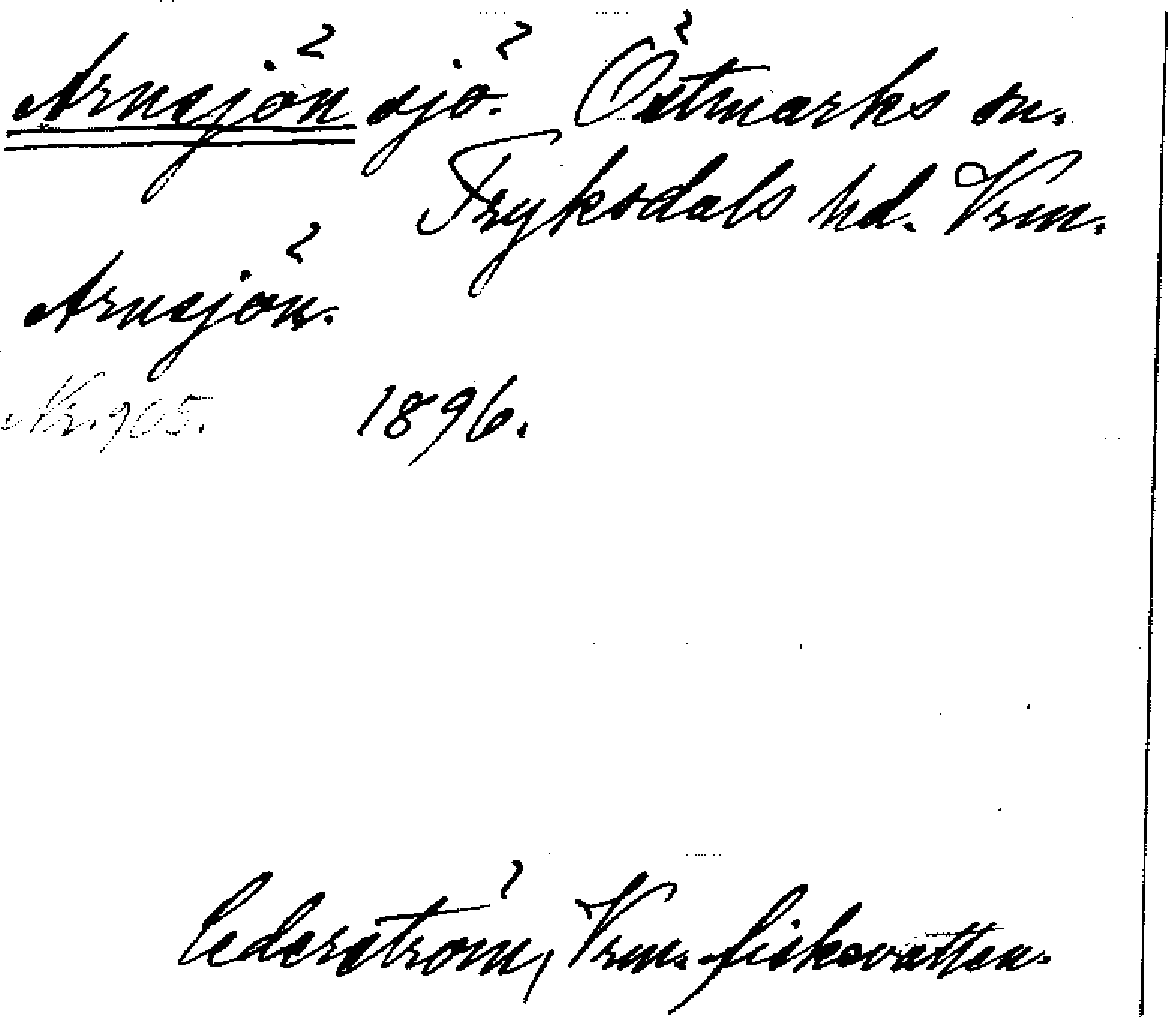 Arnsjön sjö. Östmarks sn.
Fryksdals hd. Vrm.
Arnsjön.
Nr. 905. 1896.
Cederström, Vrm. fiskevatten.